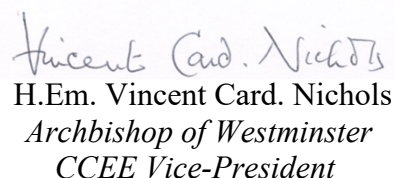 Vincent Card. Nichols
H.Em. Vincent Card. Nichols
Archbishop of Westminster
CCEE Vice-President